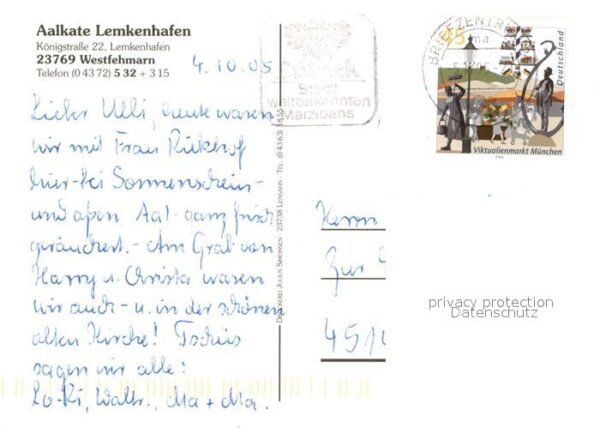 Aalkate Lemkenhafen
Königstraße 22, Lemkenhafen
23769 Westfehmarn
Telefon (0 43 72) 5 32 + 3 15
4.10.05
Lieber Ulli, heute waren
wir mit Frau Riekhof
hier - bei Sonnenschein -
und aßen Aal - ganz frisch
geräuchert. - Am Grab von
Harry u. Christa waren
wir auch - u. in der schönen
alten Kirche! Tschüs
sagen wir alle:
Lo-Ki, Walt., Ma + Ma.
Stadt
weltbekannten
Marzipans
BRIEFZENTR
55
Deutschland
Viktualienmarkt München
Herrn
Zur
451
privacy protection
Datenschutz